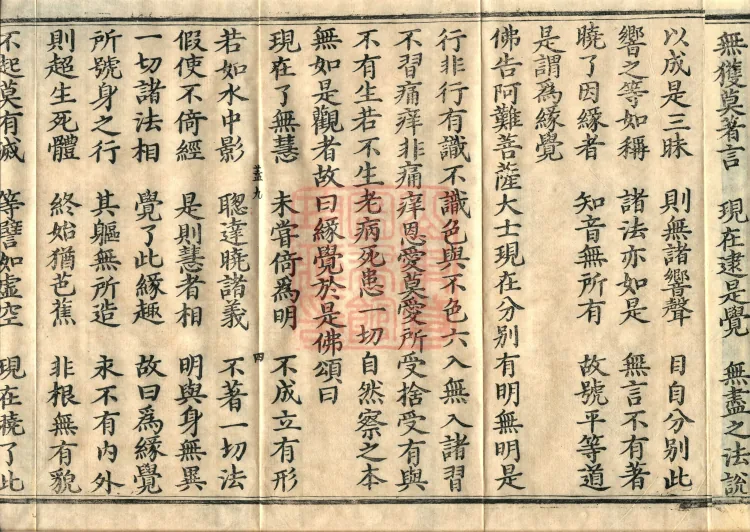 無獲莫著言　現在逮是覺　無盡之法說
以成是三昧　則無諸響聲　目自分別此
響之等如稱　諸法亦如是　無言不有著
曉了因緣者　知音無所有　故號平等道
是謂為緣覺
佛告阿難菩薩大士現在分別有明無明是
行非行有識不識色與不色六入無入諸習
不習痛痒非痛痒恩愛莫愛所受捨受有與
不有生若不生老病死患一切自然察之本
無如是觀者故曰緣覺於是佛頌曰
現在了無慧　未甞倚為明　不成立有形
蓋九　四
若如水中影　聰達曉諸義　不著一切法
假使不倚經　是則慧者相　明與身無異
一切諸法相　覺了此緣趣　故曰為緣覺
所號身之行　其軀無所造　永不有內外
則超生死體　終始猶芭蕉　非根無有貌
不起莫有滅　等譬如虛空　現在曉了此